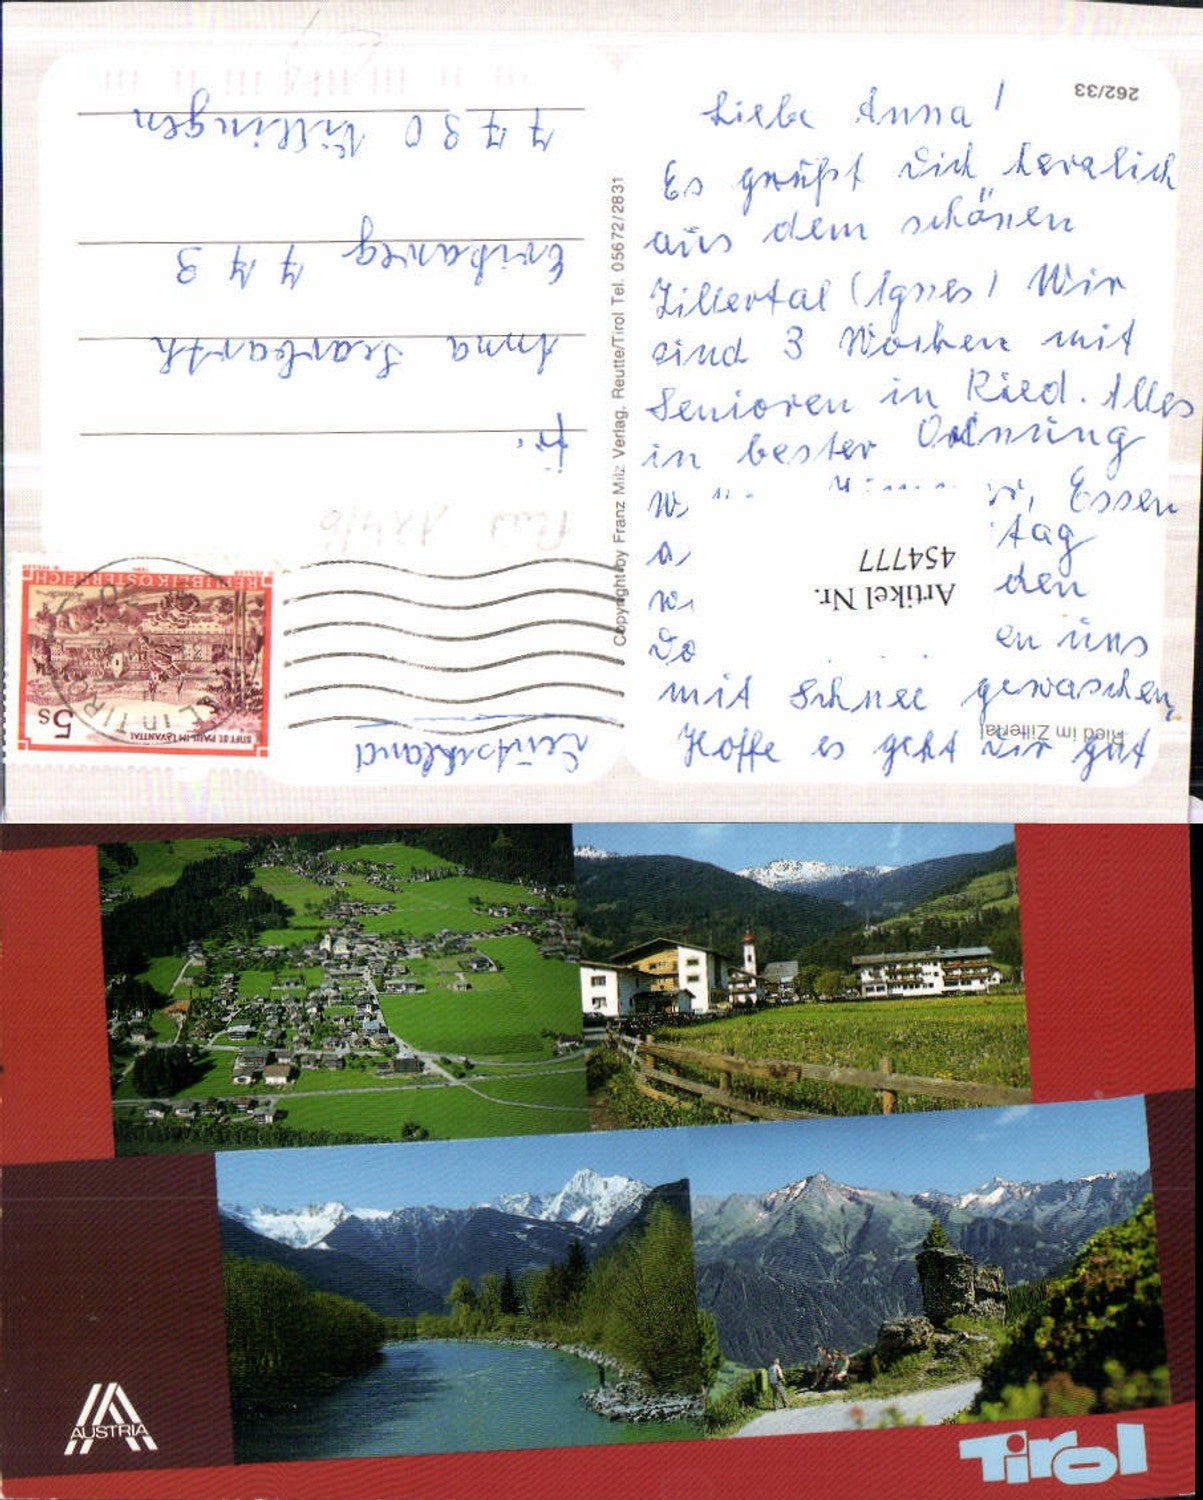 262/33
Liebe Anna!
Es grüßt Dich herzlich
aus dem schönen
Zillertal (Agnes) Wir
sind 3 Wochen mit
Senioren in Ried. Alles
in bester Ordnung
Essen
den
en uns
mit Schnee gewaschen,
Hoffe es geht Dir gut
Ried im Zillertal
Artikel Nr.
454777
Copyright by Franz Milz Verlag, Reutte/Tirol Tel. 05672/2831
REPUBLIK ÖSTERREICH
5s
STIFT ST. PAUL IM LAVANTTAL
Fr.
Anna
Erikaweg 773
7730 Villingen
Deutschland
AUSTRIA
Tirol